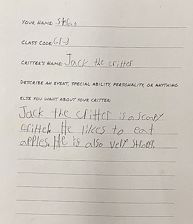 YOUR NAME:
CLASS CODE:
CRITTER'S NAME: Jack the critter
DESCRIBE AN EVENT, SPECIAL ABILITY, PERSONALITY OR ANYTHING
ELSE YOU WANT ABOUT YOUR CRITTER:
Jack the critter is a scary
critter He likes to eat
apples He is also very